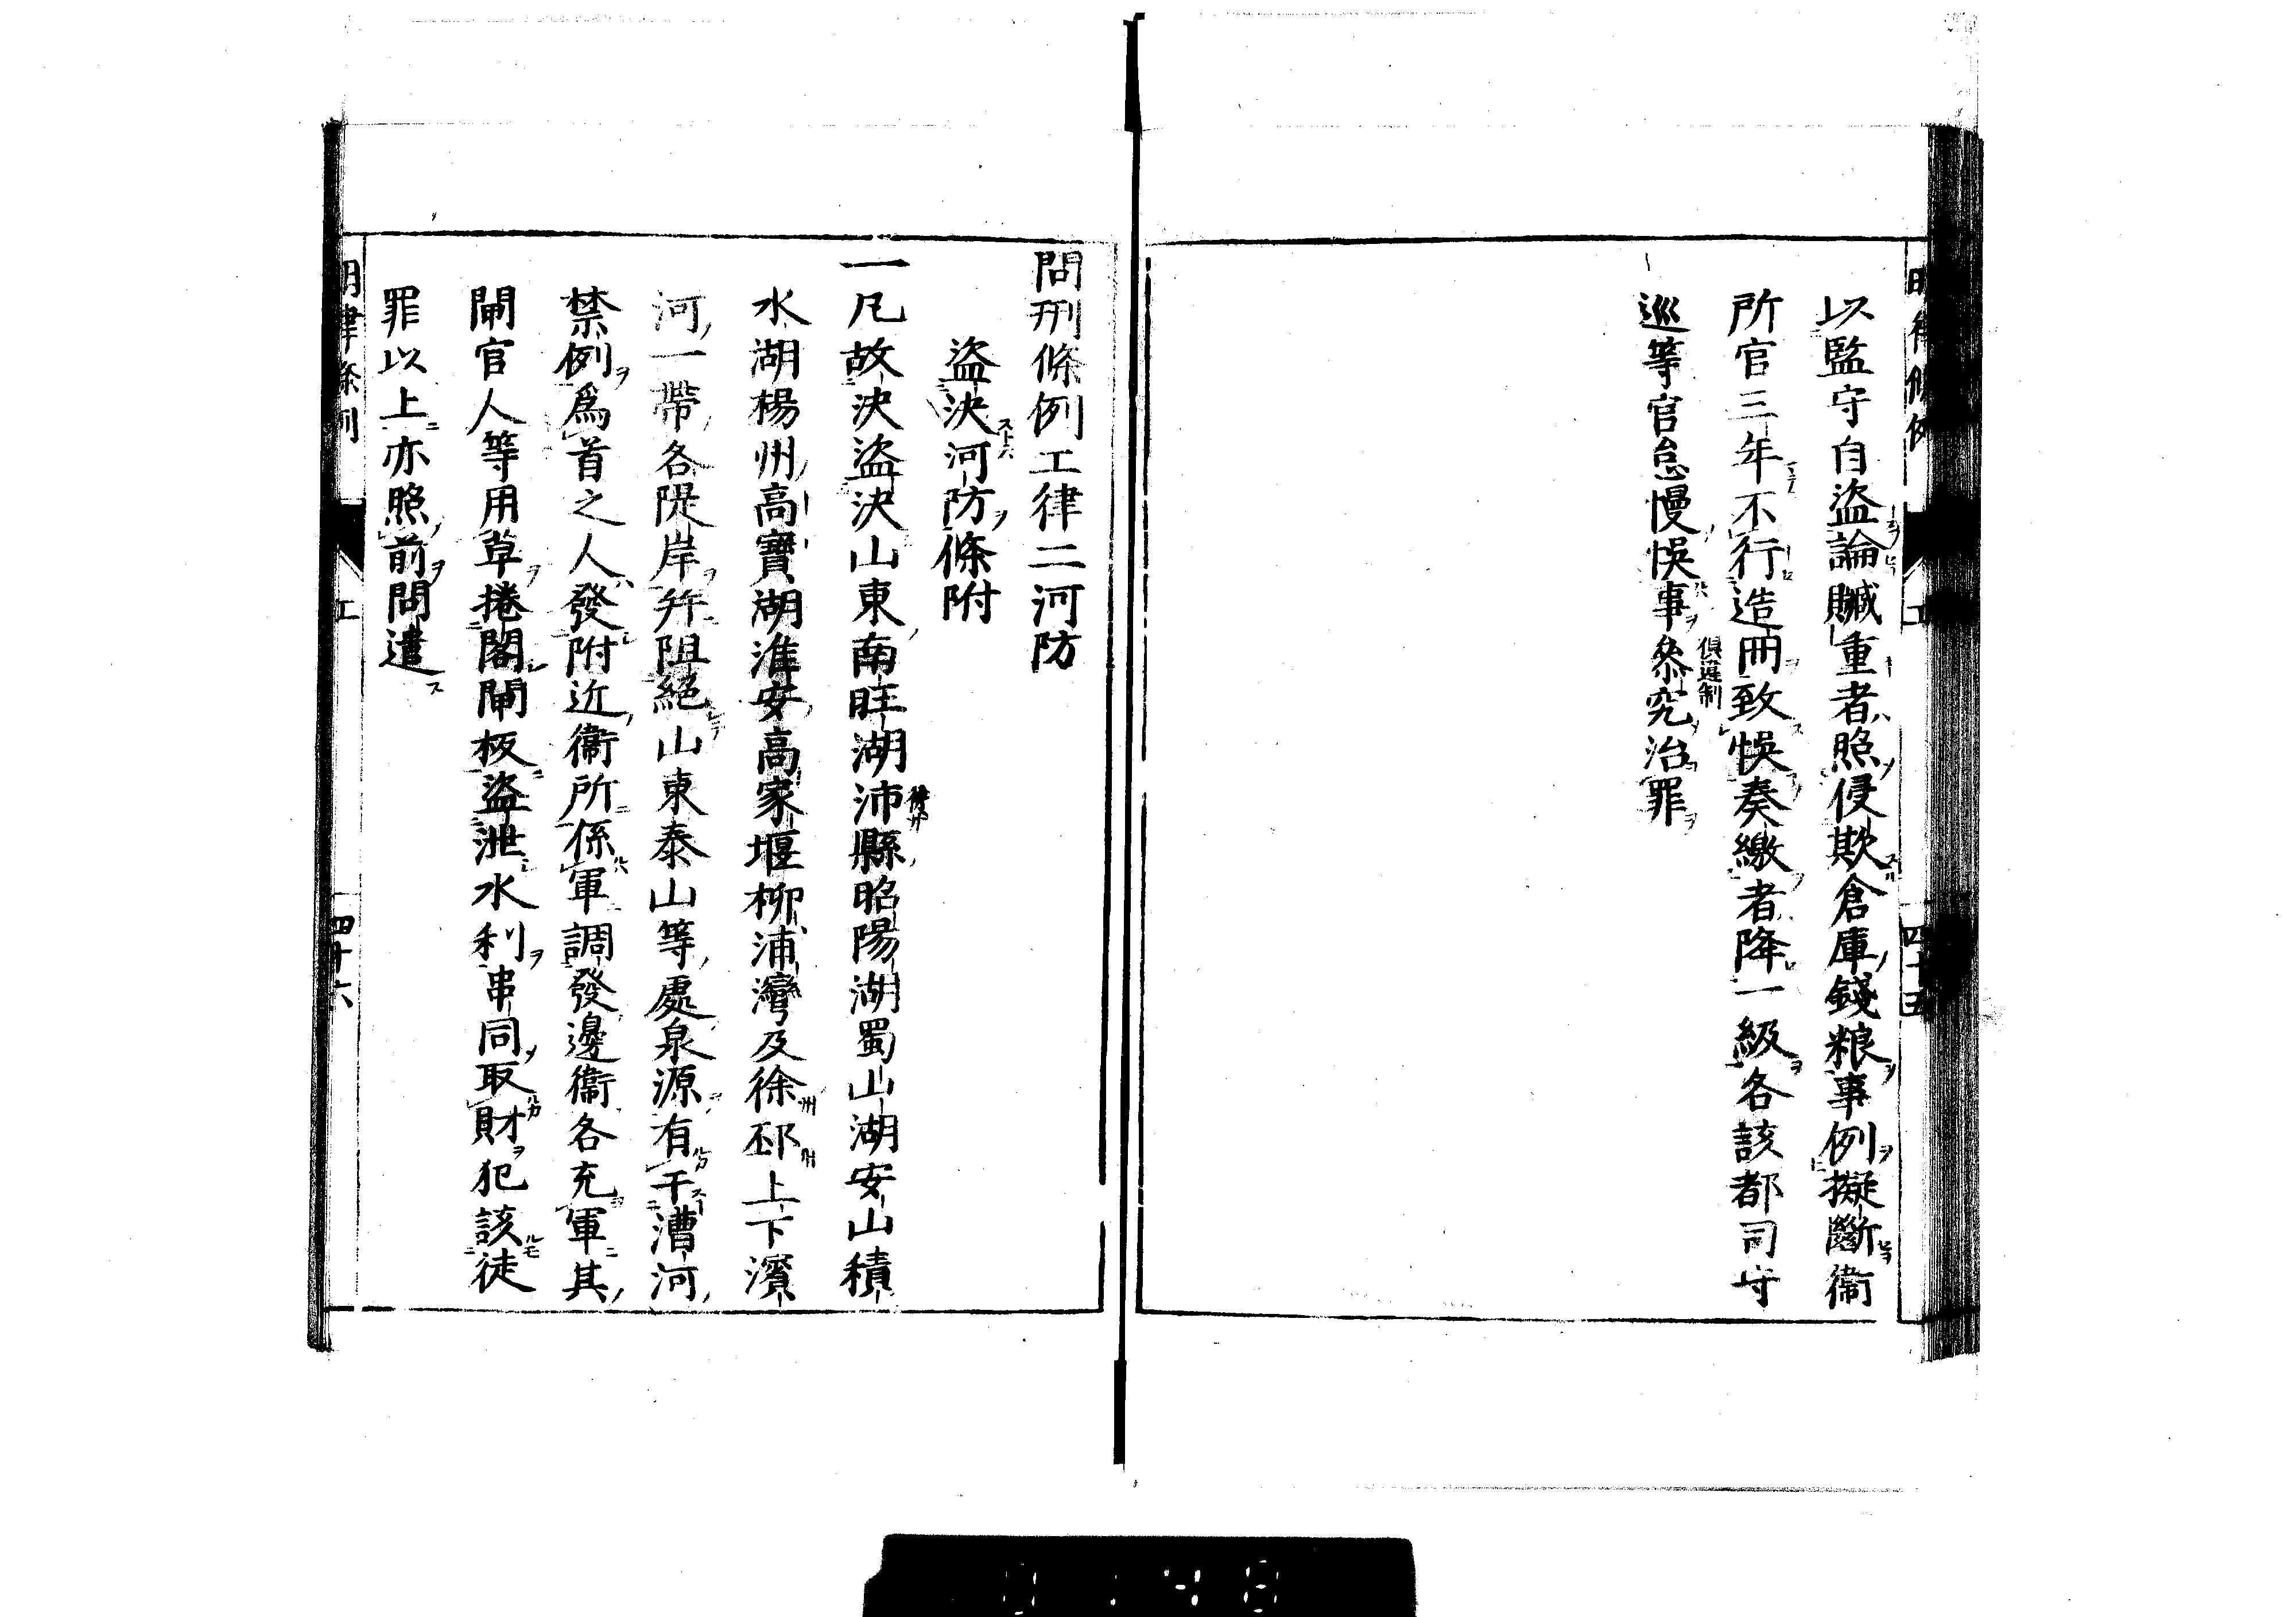 以監守自盜論贓重者照侵欺倉庫錢粮事例擬斷衞
所官三年不行造冊致悞奏繳者降一級各該都司守
巡等官怠慢悞事叅究治罪
俱違制
四十五
問刑條例工律二河防
盜決河防條附
一凡故決盜決山東南旺湖沛縣昭陽湖蜀山湖安山積
水湖楊州高寶湖淮安高家堰柳浦灣及徐邳上下濱
河一帶各隄岸并阻絕山東泰山等處泉源有干漕河
禁例爲首之人發附近衞所係軍調發邊衞各充軍其
閘官人等用草捲閣閘板盜泄水利串同取財犯該徒
罪以上亦照前問遣
明律條例
工
四十六